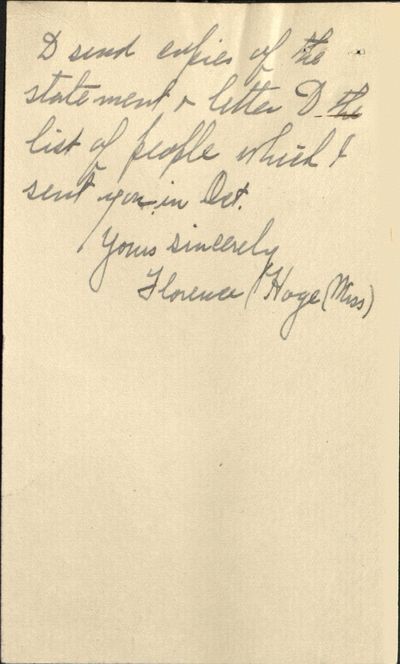 to send copies of the
statement & letter to the
list of people which I
sent you in Oct.
Yours sincerely
Florence Hoge (Miss)